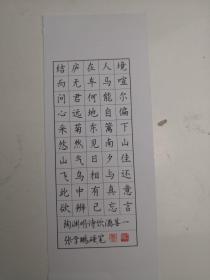 结庐在人境
而无车马喧
问君何能尔
心远地自偏
采菊东篱下
悠然见南山
山气日夕佳
飞鸟相与还
此中有真意
欲辨已忘言
陶渊明诗饮酒其一
张学鹏硬笔